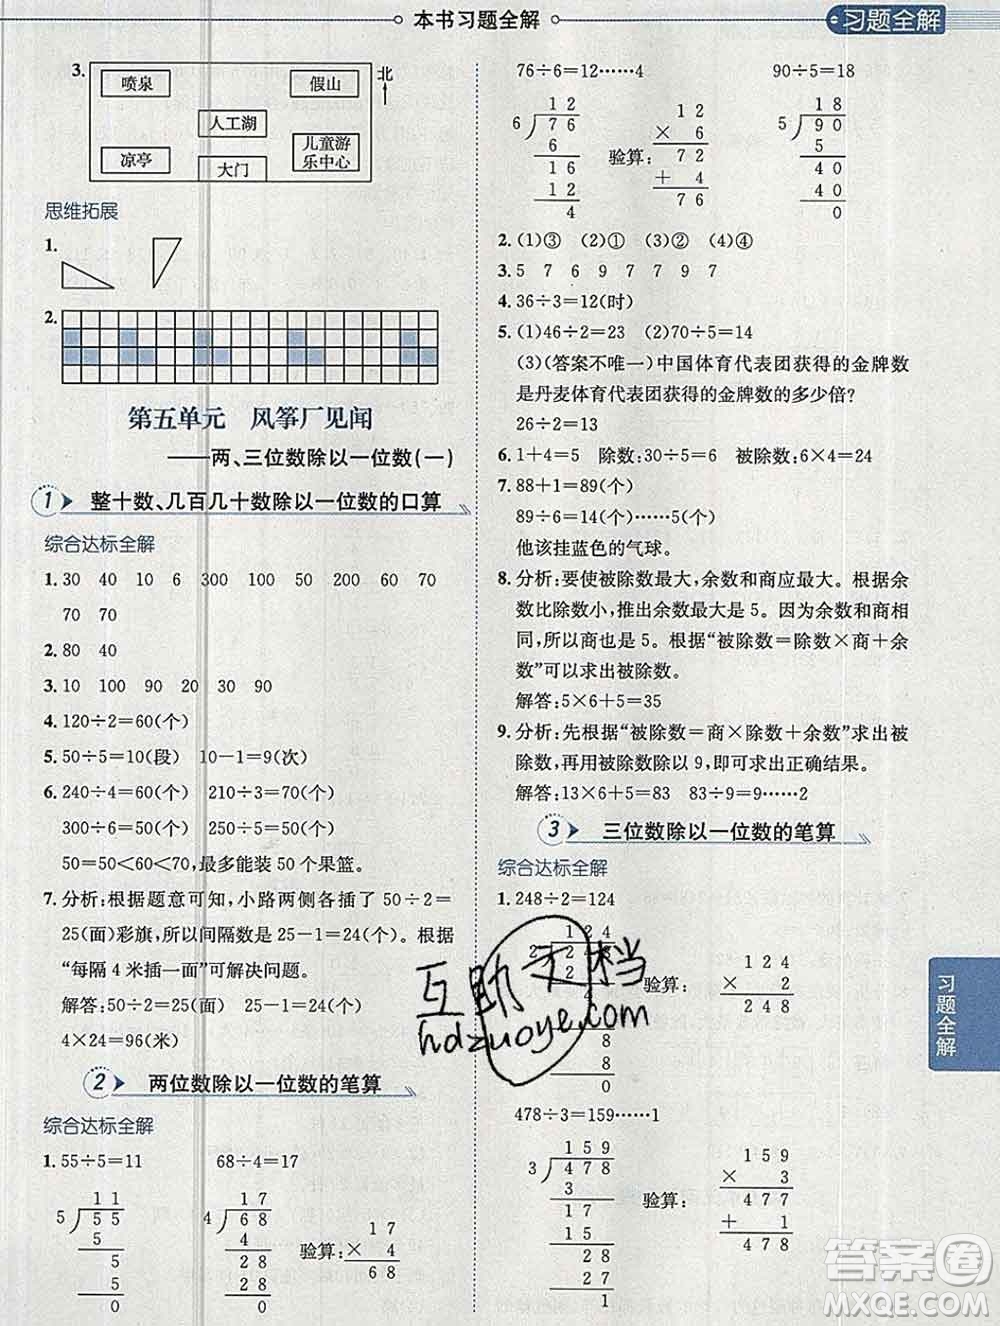 本书习题全解
习题全解
3.
北
喷泉
假山
人工湖
凉亭
大门
儿童游
乐中心
思维拓展
1.
2.
第五单元 风筝厂见闻
——两、三位数除以一位数(一)
1 整十数、几百几十数除以一位数的口算
综合达标全解
1. 30 40 10 6 300 100 200 60 70
70 70
2. 80 40
3. 10 100 90 20 90 30
4. 120÷2=60(个)
5. 50÷5=10(段) 10-1=9(次)
6. 240÷4=60(个) 210÷3=70(个)
300÷6=50(个) 250÷5=50(个)
50=50<60<70,最多能装 50 个果篮。
7. 分析:根据题意可知,小路两侧各插了 50÷2=
25(面)彩旗,所以间隔数是 25-1=24(个)。根据
“每隔 4 米插一面”可解决问题。
解答:50÷2=25(面) 25-1=24(个)
4×24=96(米)
2 两位数除以一位数的笔算
综合达标全解
1. 55÷5=11 68÷4=17
11
5 55
5
5
5
0
17
4 68
4
28
28
0
验算:
17
× 4
68
76÷6=12……4 90÷5=18
12
6 76
6
16
12
4
验算:
12
× 6
72
+ 4
76
18
5 90
5
40
40
0
2. (1)③ (2)① (3)② (4)④
3. 5 7 6 9 7 7 9 7
4. 36÷3=12(时)
5. (1)46÷2=23 (2)70÷5=14
(3)(答案不唯一)中国体育代表团获得的金牌数
是丹麦体育代表团获得的金牌数的多少倍?
26÷2=13
6. 1+4=5 除数:30÷5=6 被除数:6×4=24
7. 88+1=89(个)
89÷6=14(个)……5(个)
他该挂蓝色的气球。
8. 分析:要使被除数最大,余数和商应最大。根据余
数比除数小,推出余数最大是 5。因为余数和商相
同,所以商也是 5。根据“被除数=除数×商+余
数”可以求出被除数。
解答:5×6+5=35
9. 分析:先根据“被除数=商×除数+余数”求出被
除数,再用被除数除以 9,即可求出正确结果。
解答:13×6+5=83 83÷9=9……2
3 三位数除以一位数的笔算
综合达标全解
1. 248÷2=124
124
2 248
2
4
8
8
0
验算:
124
× 2
248
478÷3=159……1
159
3 478
3
17
15
28
27
1
验算:
159
× 3
477
+ 1
478
习题全解
互助文档
hdzuoye.com
答案圈
MXQE.COM